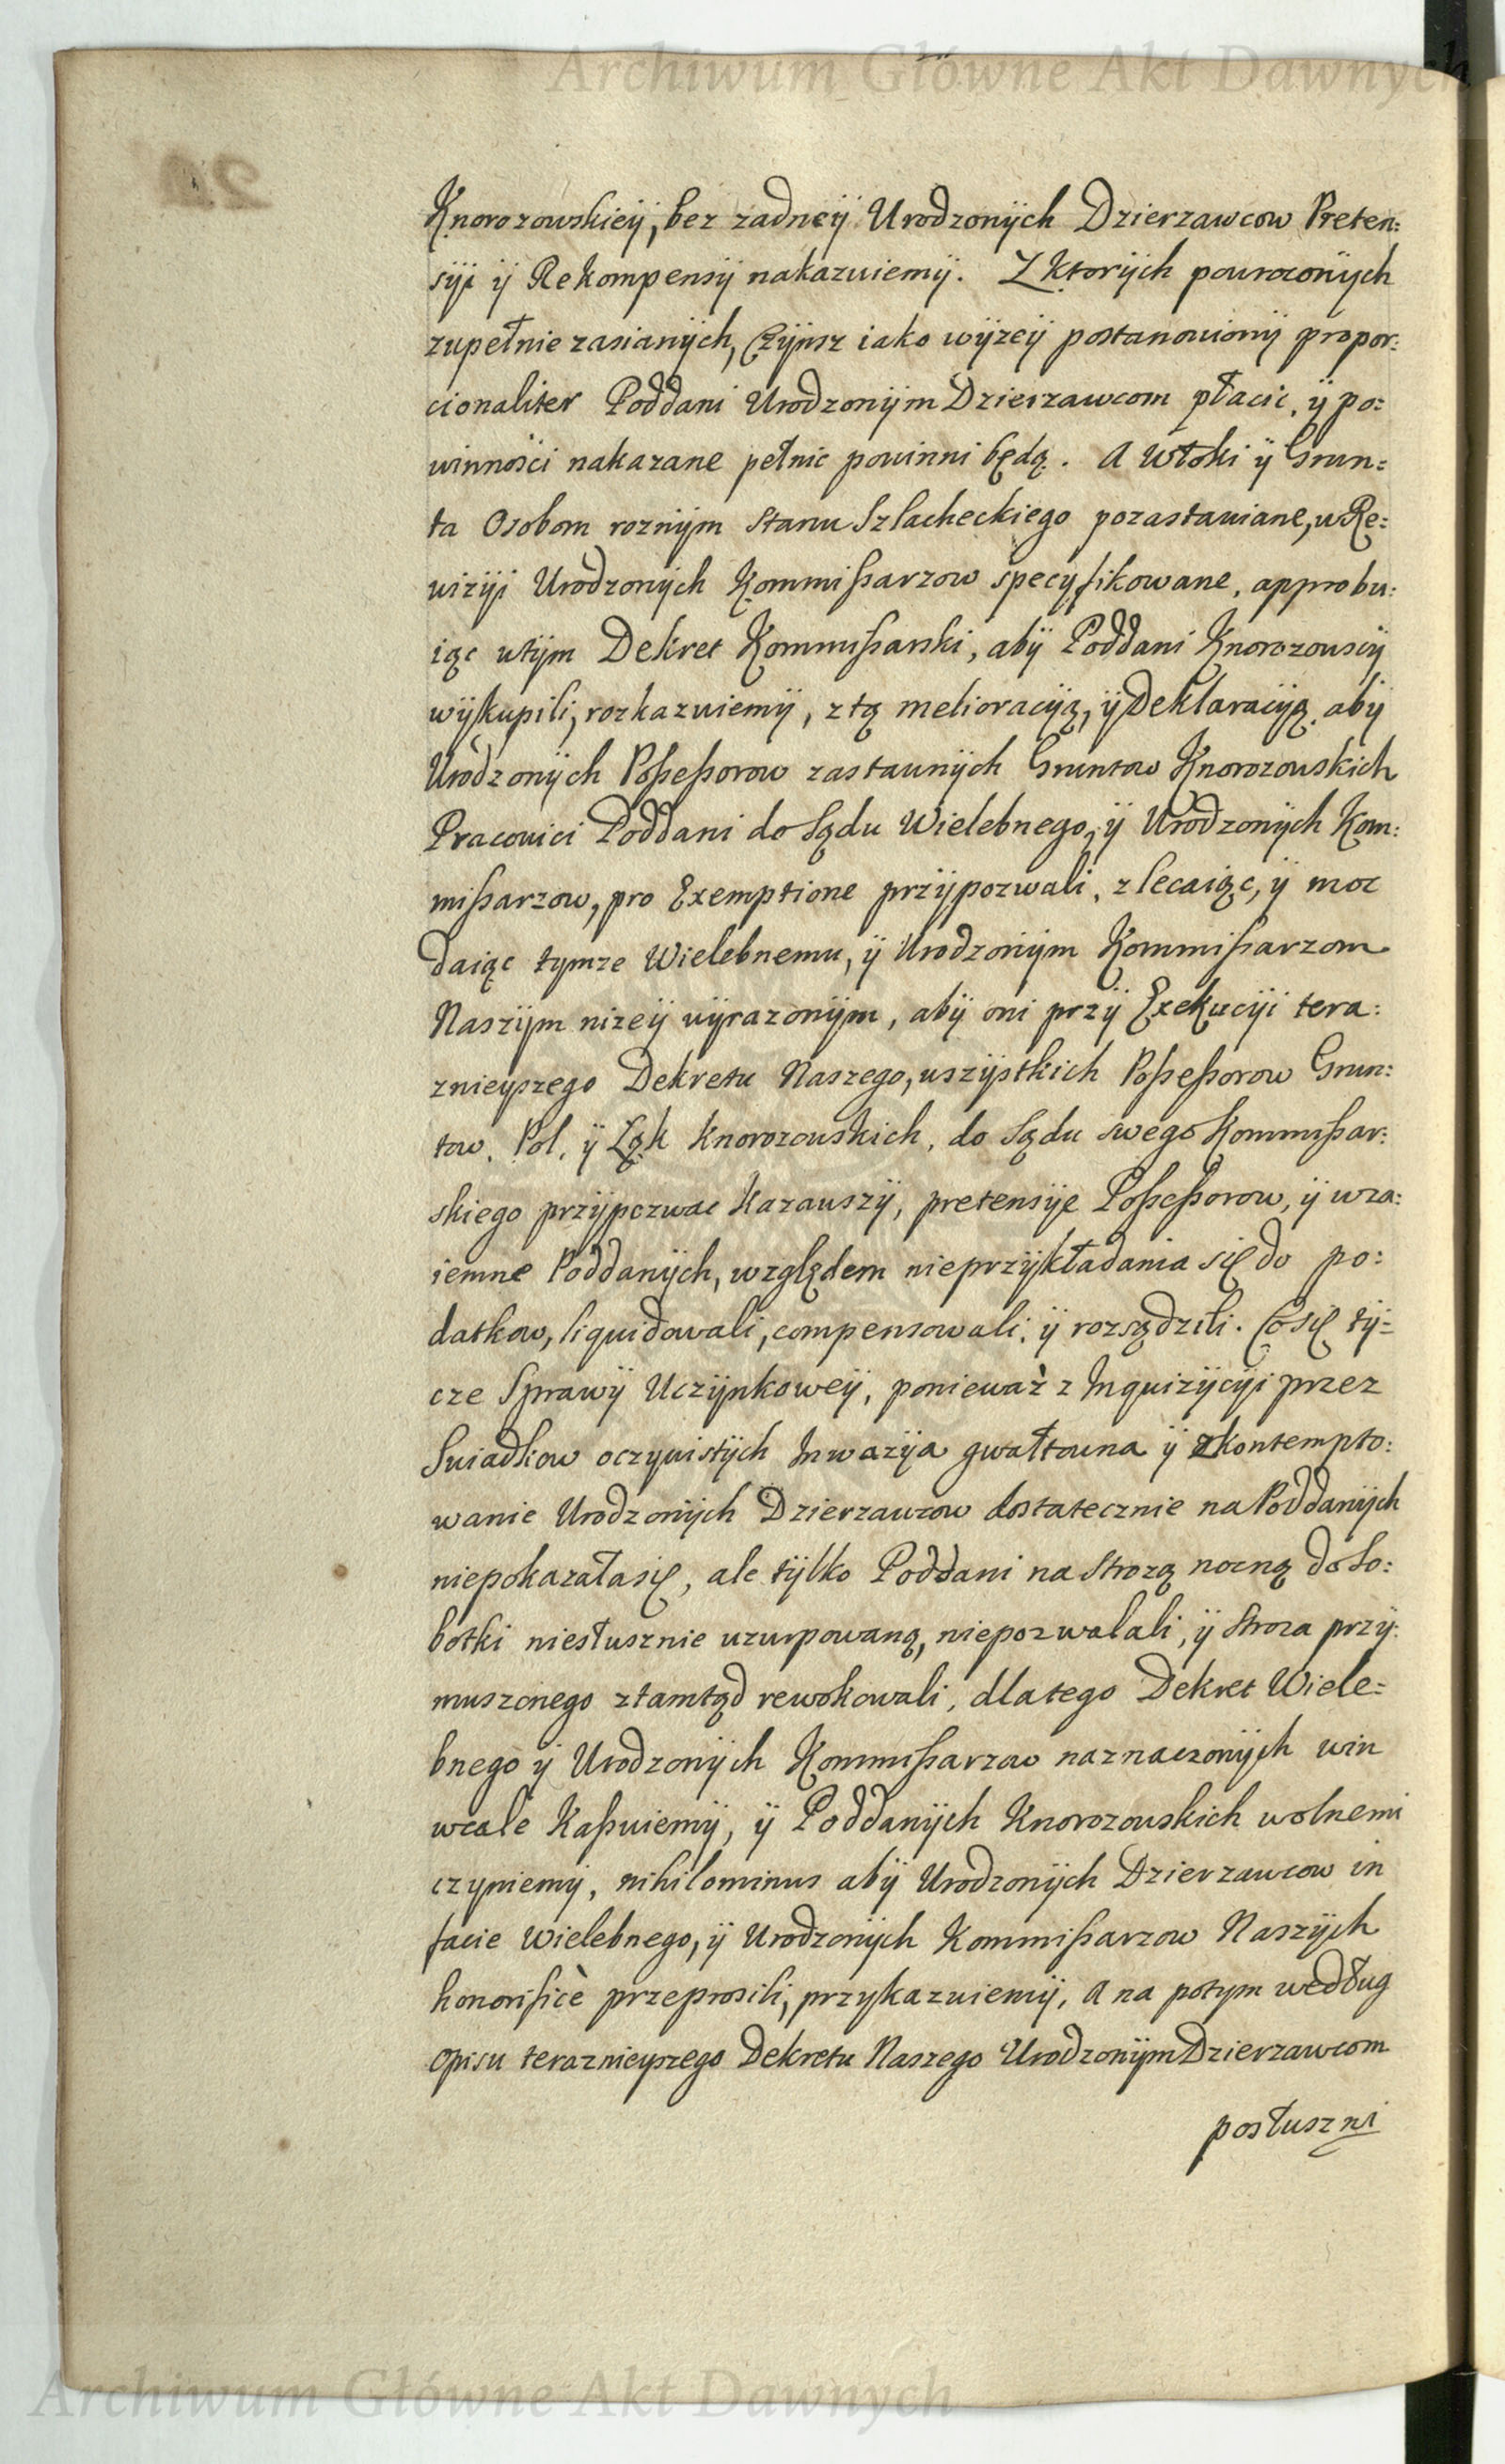 Archiwum Główne Akt Dawnych
Knorozowskieÿ, bez zadneÿ Urodzonÿch Dzierzawcow Preten:
sÿi ÿ Rekompensÿ nakazuiemÿ. Z Ktorÿch powroconÿch
zupełnie zasianÿch, Czÿnsz iako wÿzeÿ postanowionÿ propor:
cionaliter Poddani Urodzonÿm Dzierzawcom płacic, ÿ po:
winności nakazane pełnic powinni będą. A Włoki ÿ Grun=
ta Osobom roznÿm Stanu Szlacheckiego pozastawiane, w Re:
wizÿi Urodzonÿch Kommißarzow specyfikowane, approbu:
iąc w tÿm Dekret Kommißarski, abÿ Poddani Knorozowscÿ
wÿkupili, rozkazuiemÿ, z tą melioracÿą, ÿ Deklaracÿą, abÿ
Urodzonÿch Poßeßorow zastawnÿch Gruntow Knorozowskich
Pracowici Poddani do Sądu Wielebnego, ÿ Urodzonÿch Kom:
mißarzow, pro Exemptione przÿpozwali, zlecaiąc, ÿ moc
daiąc tymze Wielebnemu, ÿ Urodzonÿm Kommißarzom
Naszÿm nizeÿ wÿrazonÿm, abÿ oni przÿ Exekucÿi tera:
znieyszego Dekretu Naszego, wszÿstkich Poßeßorow Grun:
tow, Pol, ÿ Łąk Knorozowskich, do Sądu swego Kommißar:
skiego przÿpozwac Kazawszÿ, pretensÿe Poßeßorow, ÿ wza:
iemne Poddanÿch, względem nieprzÿkładania się do po:
datkow, liquidowali, compensowali, ÿ rozsądzili. Co się tÿ=
cze Sprawÿ Uczÿnkoweÿ, ponieważ z Inquizÿcÿi przez
Swiadkow oczywistÿch Inwazÿa gwałtowna ÿ zkontempto:
wanie Urodzonÿch Dzierzawcow dostatecznie na Poddanÿch
niepokazałasię, ale tÿlko Poddani na Strozą nocną do So:
botki niesłusznie uzurpowaną, niepozwalali, ÿ Stroza przÿ:
muszonego ztamtąd rewokowali, dlatego Dekret Wiele=
bnego ÿ Urodzonÿch Kommißarzow naznaczonÿch win
wcale Kaßuiemÿ, ÿ Poddanÿch Knorozowskich wolnemi
czyniemÿ, nihilominus abÿ Urodzonÿch Dzierzawcow in
facie Wielebnego, ÿ Urodzonÿch Kommißarzow Naszÿch
honorificè przeprosili, przykazuiemÿ, A na potym według
opisu teraznieyszego Dekretu Naszego Urodzonÿm Dzierzawcom
posłuszni
Archiwum Główne Akt Dawnych